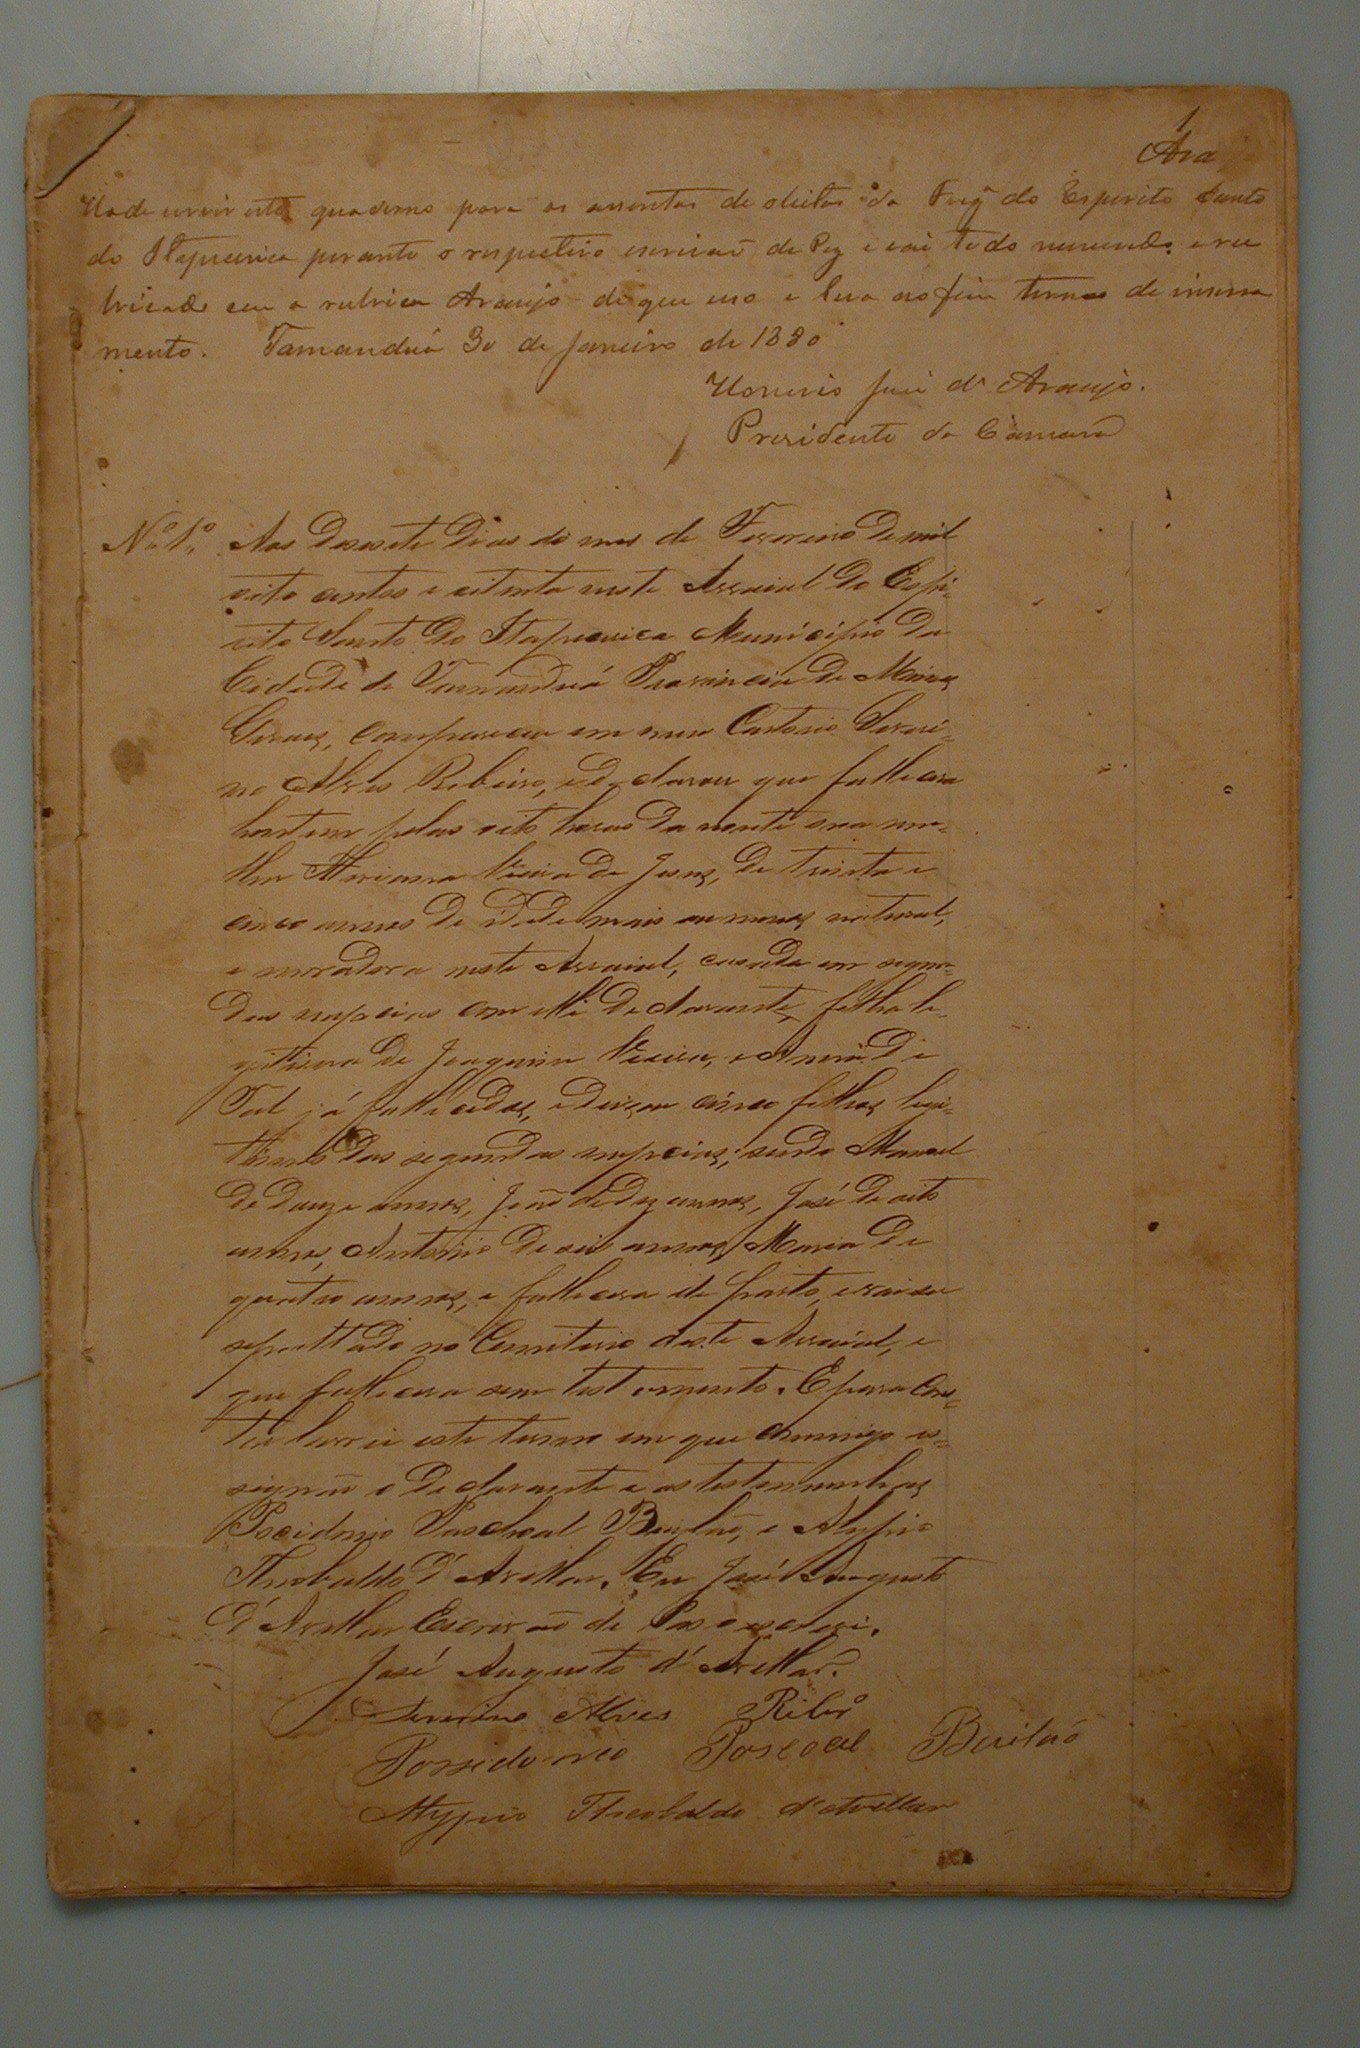 1
Ara
Hade servir este quaderno para os assentos de obitos da Freg.ª do Esperito Santo
do Itapecirica perante o respectivo escrivaõ de Paz e vai todo numerado e ru
bricado com a rubrica Araujo de que uso e leva ao fim termo de encerra
mento. Tamanduá 30 de Janeiro de 1880
Honorio José d' Araujo.
Presidente da Camara
N.º 1.º Aos desesete dias do mes de Fevereiro de mil
oito centos e oitenta neste Arraial do Espi-
rito Santo do Itapecirica Municipio da
Cidade de Tamanduá Provincia de Minas
Geraes, compareceu em meu Cartorio Severi-
no Alves Ribeiro, e declarou que fallecera
hontem pelas oito horas da noute sua mu-
lher Marianna Vieira de Jesus, de trinta e
cinco annos de idade mais ou menos, natural,
e moradora neste Arraial, casada em segun-
das nupcias com elle declarante, filha le-
gitima de Joaquim Vieira, e Anna de
Tal já fallecidos, e deixou cinco filhos legi-
timos das segundas nupcias; sendo Manoel
de douze annos, Joaõ de dez annos, José de oito
annos, Antonio de seis annos, Maria de
quatro annos, e fallecera de parto, e vai ser
sepulttada no Cemiterio deste Arraial, e
que fallecera sem testamento. E para Cons-
tar lavrei este termo em que commigo as-
signaõ o declarante e as testemunhas
Pocidonio Paschoal Berilaõ, e Alypio
Theobaldo d'Avellar. Eu José Augusto
d'Avellar Escrivaõ de Pas o escrevi.
José Augusto d'Avellar.
Severino Alves Ribrº
Possidoneo Pascoal Berilaõ
Alypio Theobaldo d'Avellar